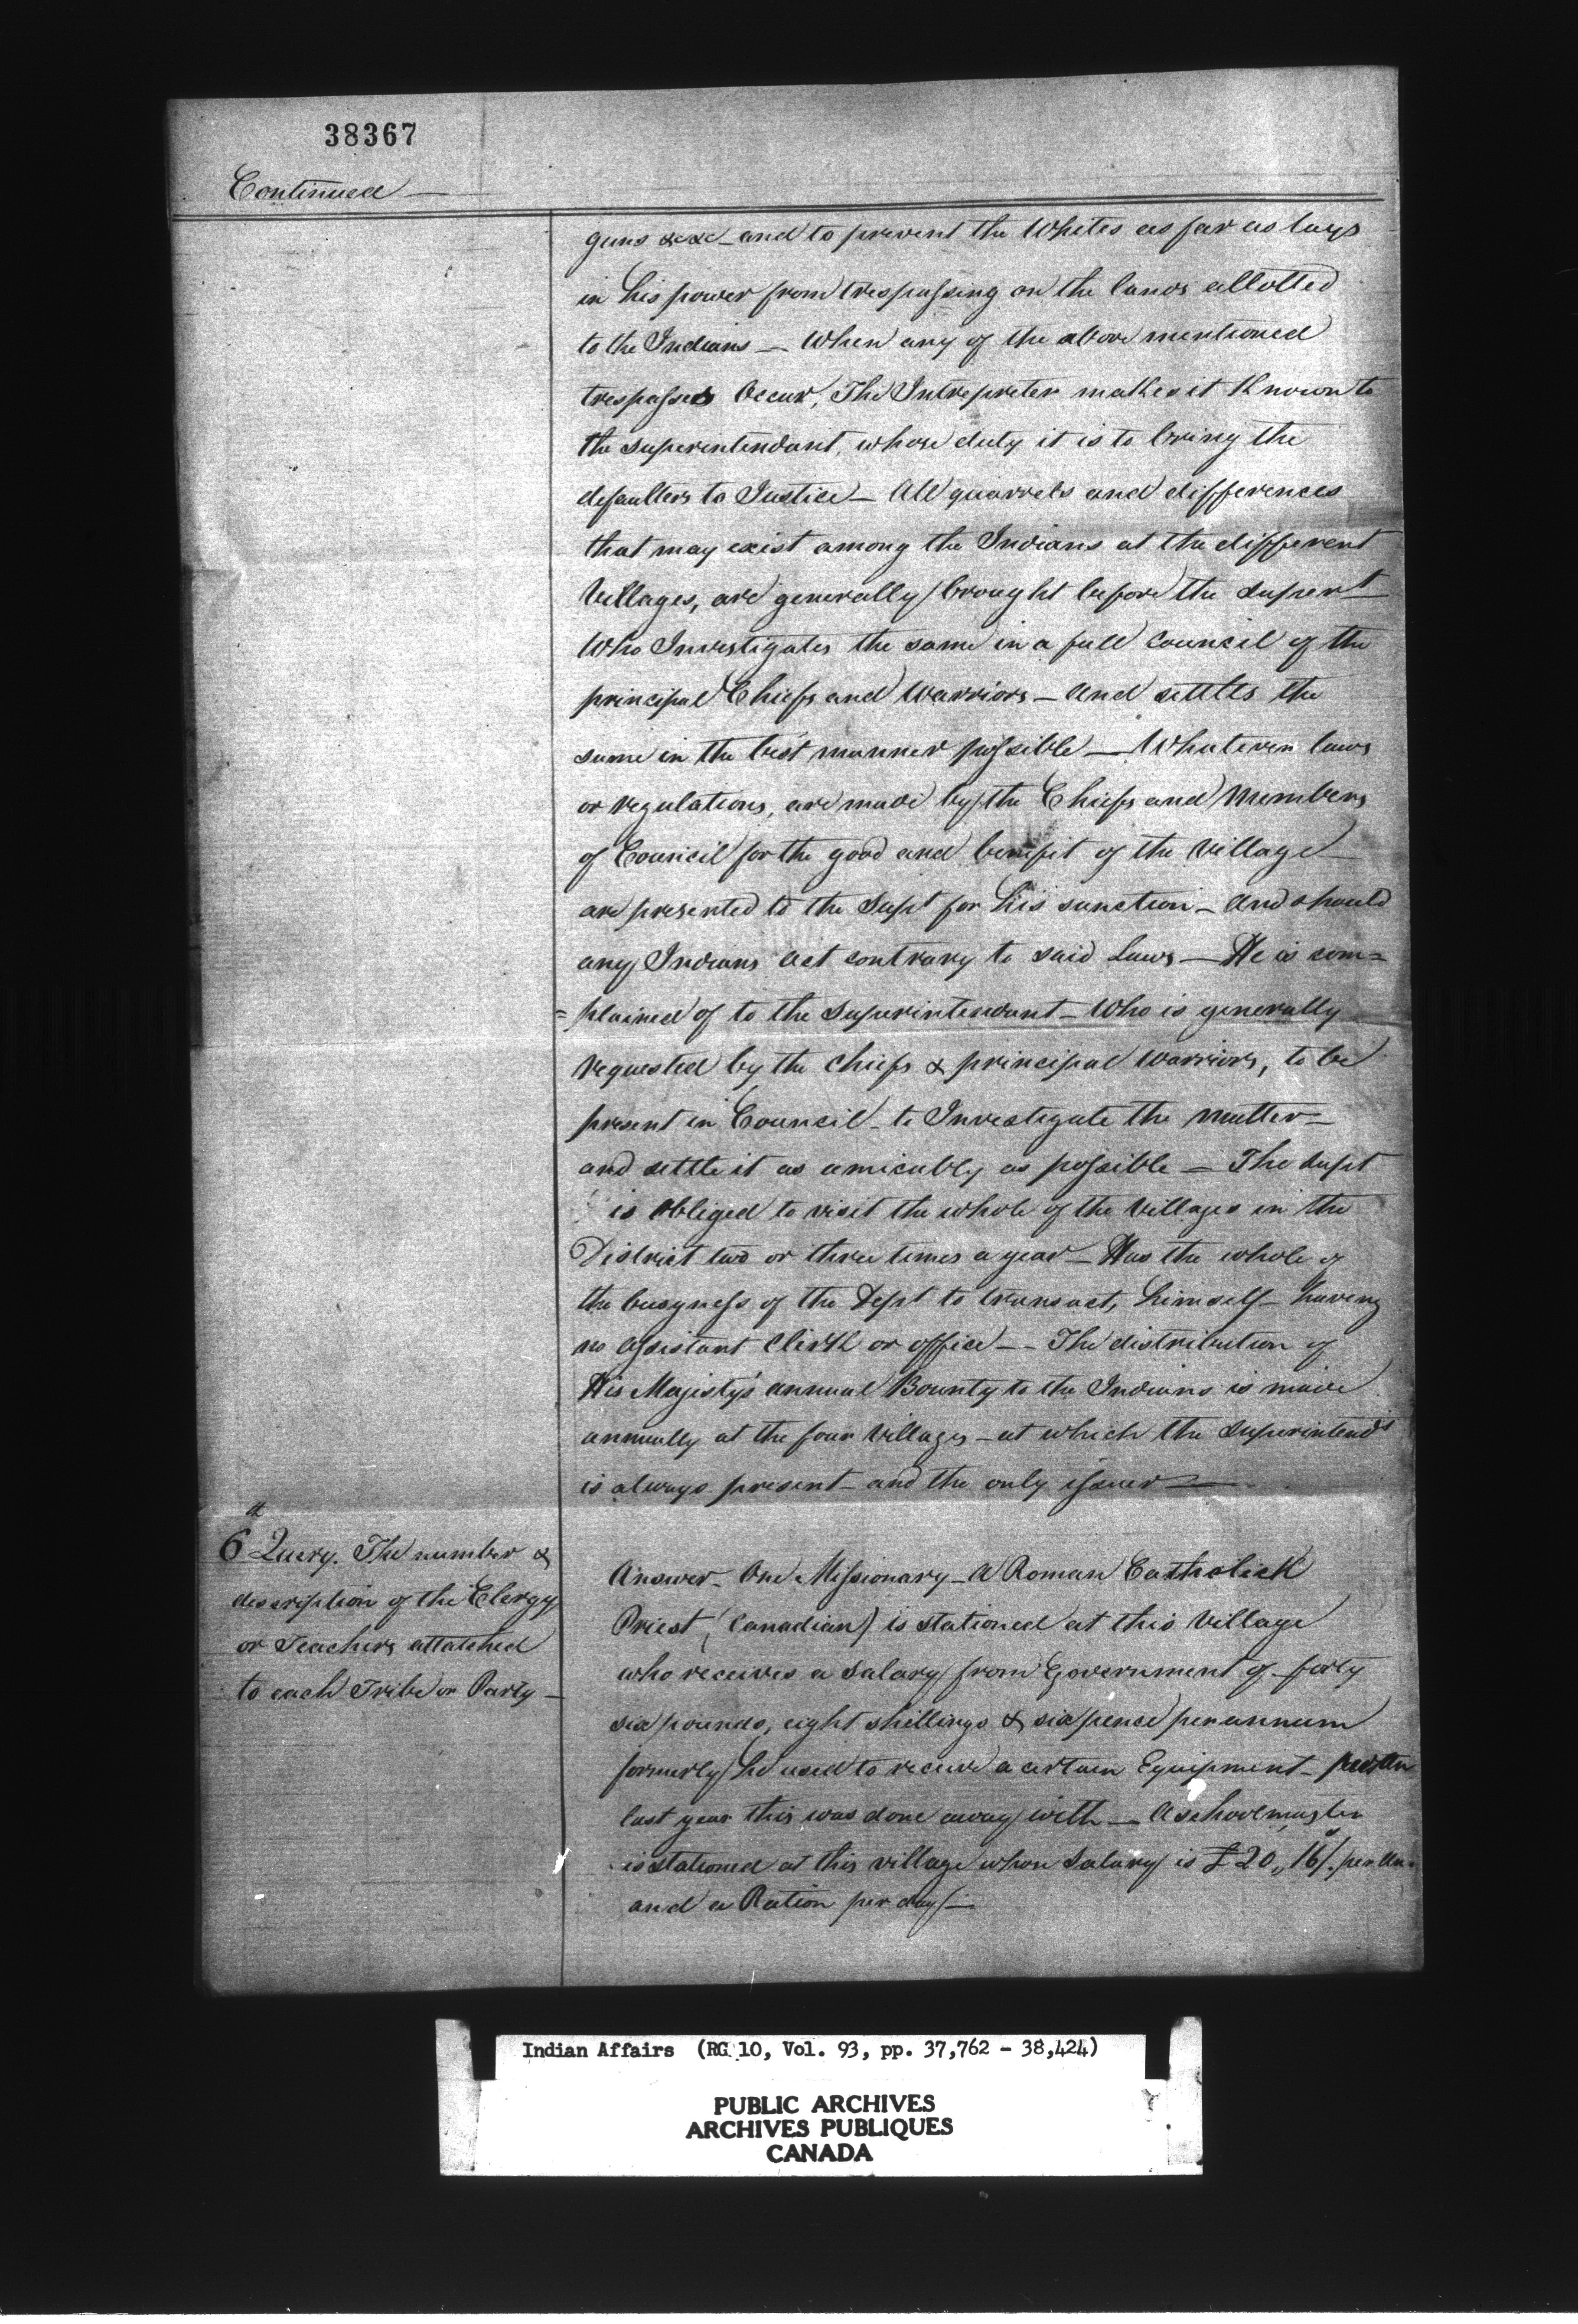 38367
Continued —
guns &c &c — and to prevent the Whites as far as lays
in his power from trespassing on the lands allotted
to the Indians — When any of the above mentioned
trespasses Occur, The Intrepreter makes it Known to
the superintendant, whose duty it is to bring the
defaulters to Justice — All quarrels and differences
that may exist among the Indians at the different
Villages, are generally brought before the Supert
Who Investigates the same in a full Council of the
principal Chiefs and Warriors — and settles the
same in the best manner possible — Whatever laws
or regulations, are made by the Chiefs and Members
of Council for the good and benefit of the Village
are presented to the Supt for his sanction — and should
any Indians act contrary to said Laws — He is com=
=plained of to the Superintendant — Who is generally
requested by the Chiefs & principal Warriors, to be
present in Council — to Investigate the matter —
and settle it as amicably as possible — The Supt
is Obliged to visit the whole of the Villages in the
District two or three times a year — Has the whole of
the busyness of the Dept to transact, himself — having
no assistant Clerk or office — The distribution of
His Majisty's annual Bounty to the Indians is made
annually at the four Villages — at which the Superintendt
is always present — and the only issuer —
6th Query. The number &
description of the Clergy
or Teachers attatched
to each Tribe or Party —
Answer — One Missionary — A Roman Catholick
Priest (Canadian) is stationed at this Village
who receives a Salary from Government of forty
six pounds, eight shillings & six pence per annum
formerly he used to receive a certain Equipment —
last year this was done away with — A schoolmaster
is stationed at this village whose Salary is £20,, 16/. per An.
and a Ration per day —
Indian Affairs (RG 10, Vol. 93, pp. 37,762 - 38,424)
PUBLIC ARCHIVES
ARCHIVES PUBLIQUES
CANADA